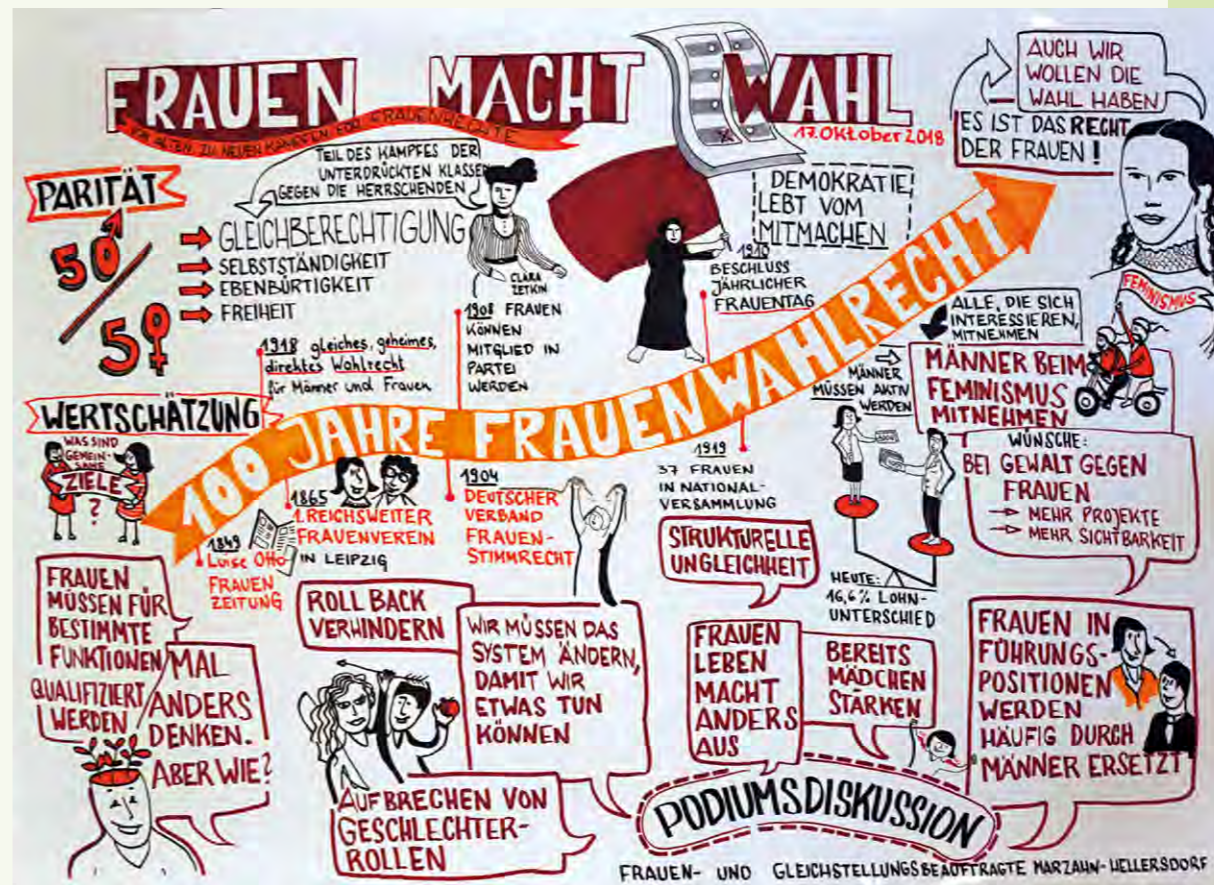 FRAUEN MACHT WAHL
VON ALTEN ZU NEUEN KÄMPFEN FÜR FRAUENRECHTE
17. Oktober 2018
AUCH WIR
WOLLEN DIE
WAHL HABEN
ES IST DAS RECHT
DER FRAUEN!
PARITÄT
50/50
TEIL DES KAMPFES DER
UNTERDRÜCKTEN KLASSEN
GEGEN DIE HERRSCHENDEN
GLEICHBERECHTIGUNG
SELBSTSTÄNDIGKEIT
EBENBÜRTIGKEIT
FREIHEIT
CLARA
ZETKIN
DEMOKRATIE
LEBT VOM
MITMACHEN
FEMINISMUS
100 JAHRE FRAUENWAHLRECHT
1918 gleiches, geheimes,
direktes Wahlrecht
für Männer und Frauen
1908 FRAUEN
KÖNNEN
MITGLIED IN
PARTEI
WERDEN
1910
BESCHLUSS
JÄHRLICHER
FRAUENTAG
ALLE, DIE SICH
INTERESSIEREN,
MITNEHMEN
MÄNNER
MÜSSEN AKTIV
WERDEN
MÄNNER BEIM
FEMINISMUS
MITNEHMEN
WERTSCHÄTZUNG
WAS SIND
GEMEIN-
SAME
ZIELE
?
1849
Luise Otto
FRAUEN
ZEITUNG
1865
1. REICHSWEITER
FRAUENVEREIN
IN LEIPZIG
1904
DEUTSCHER
VERBAND
FRAUEN-
STIMMRECHT
1919
37 FRAUEN
IN NATIONAL-
VERSAMMLUNG
WÜNSCHE:
BEI GEWALT GEGEN
FRAUEN
MEHR PROJEKTE
MEHR SICHTBARKEIT
STRUKTURELLE
UNGLEICHHEIT
HEUTE:
16,6% LOHN-
UNTERSCHIED
FRAUEN
MÜSSEN FÜR
BESTIMMTE
FUNKTIONEN
QUALIFIZIERT
WERDEN
MAL
ANDERS
DENKEN.
ABER WIE?
ROLL BACK
VERHINDERN
WIR MÜSSEN DAS
SYSTEM ÄNDERN,
DAMIT WIR
ETWAS TUN
KÖNNEN
AUFBRECHEN VON
GESCHLECHTER-
ROLLEN
FRAUEN
LEBEN
MACHT
ANDERS
AUS
BEREITS
MÄDCHEN
STÄRKEN
FRAUEN IN
FÜHRUNGS-
POSITIONEN
WERDEN
HÄUFIG DURCH
MÄNNER ERSETZT
PODIUMSDISKUSSION
FRAUEN- UND GLEICHSTELLUNGSBEAUFTRAGTE MARZAHN-HELLERSDORF